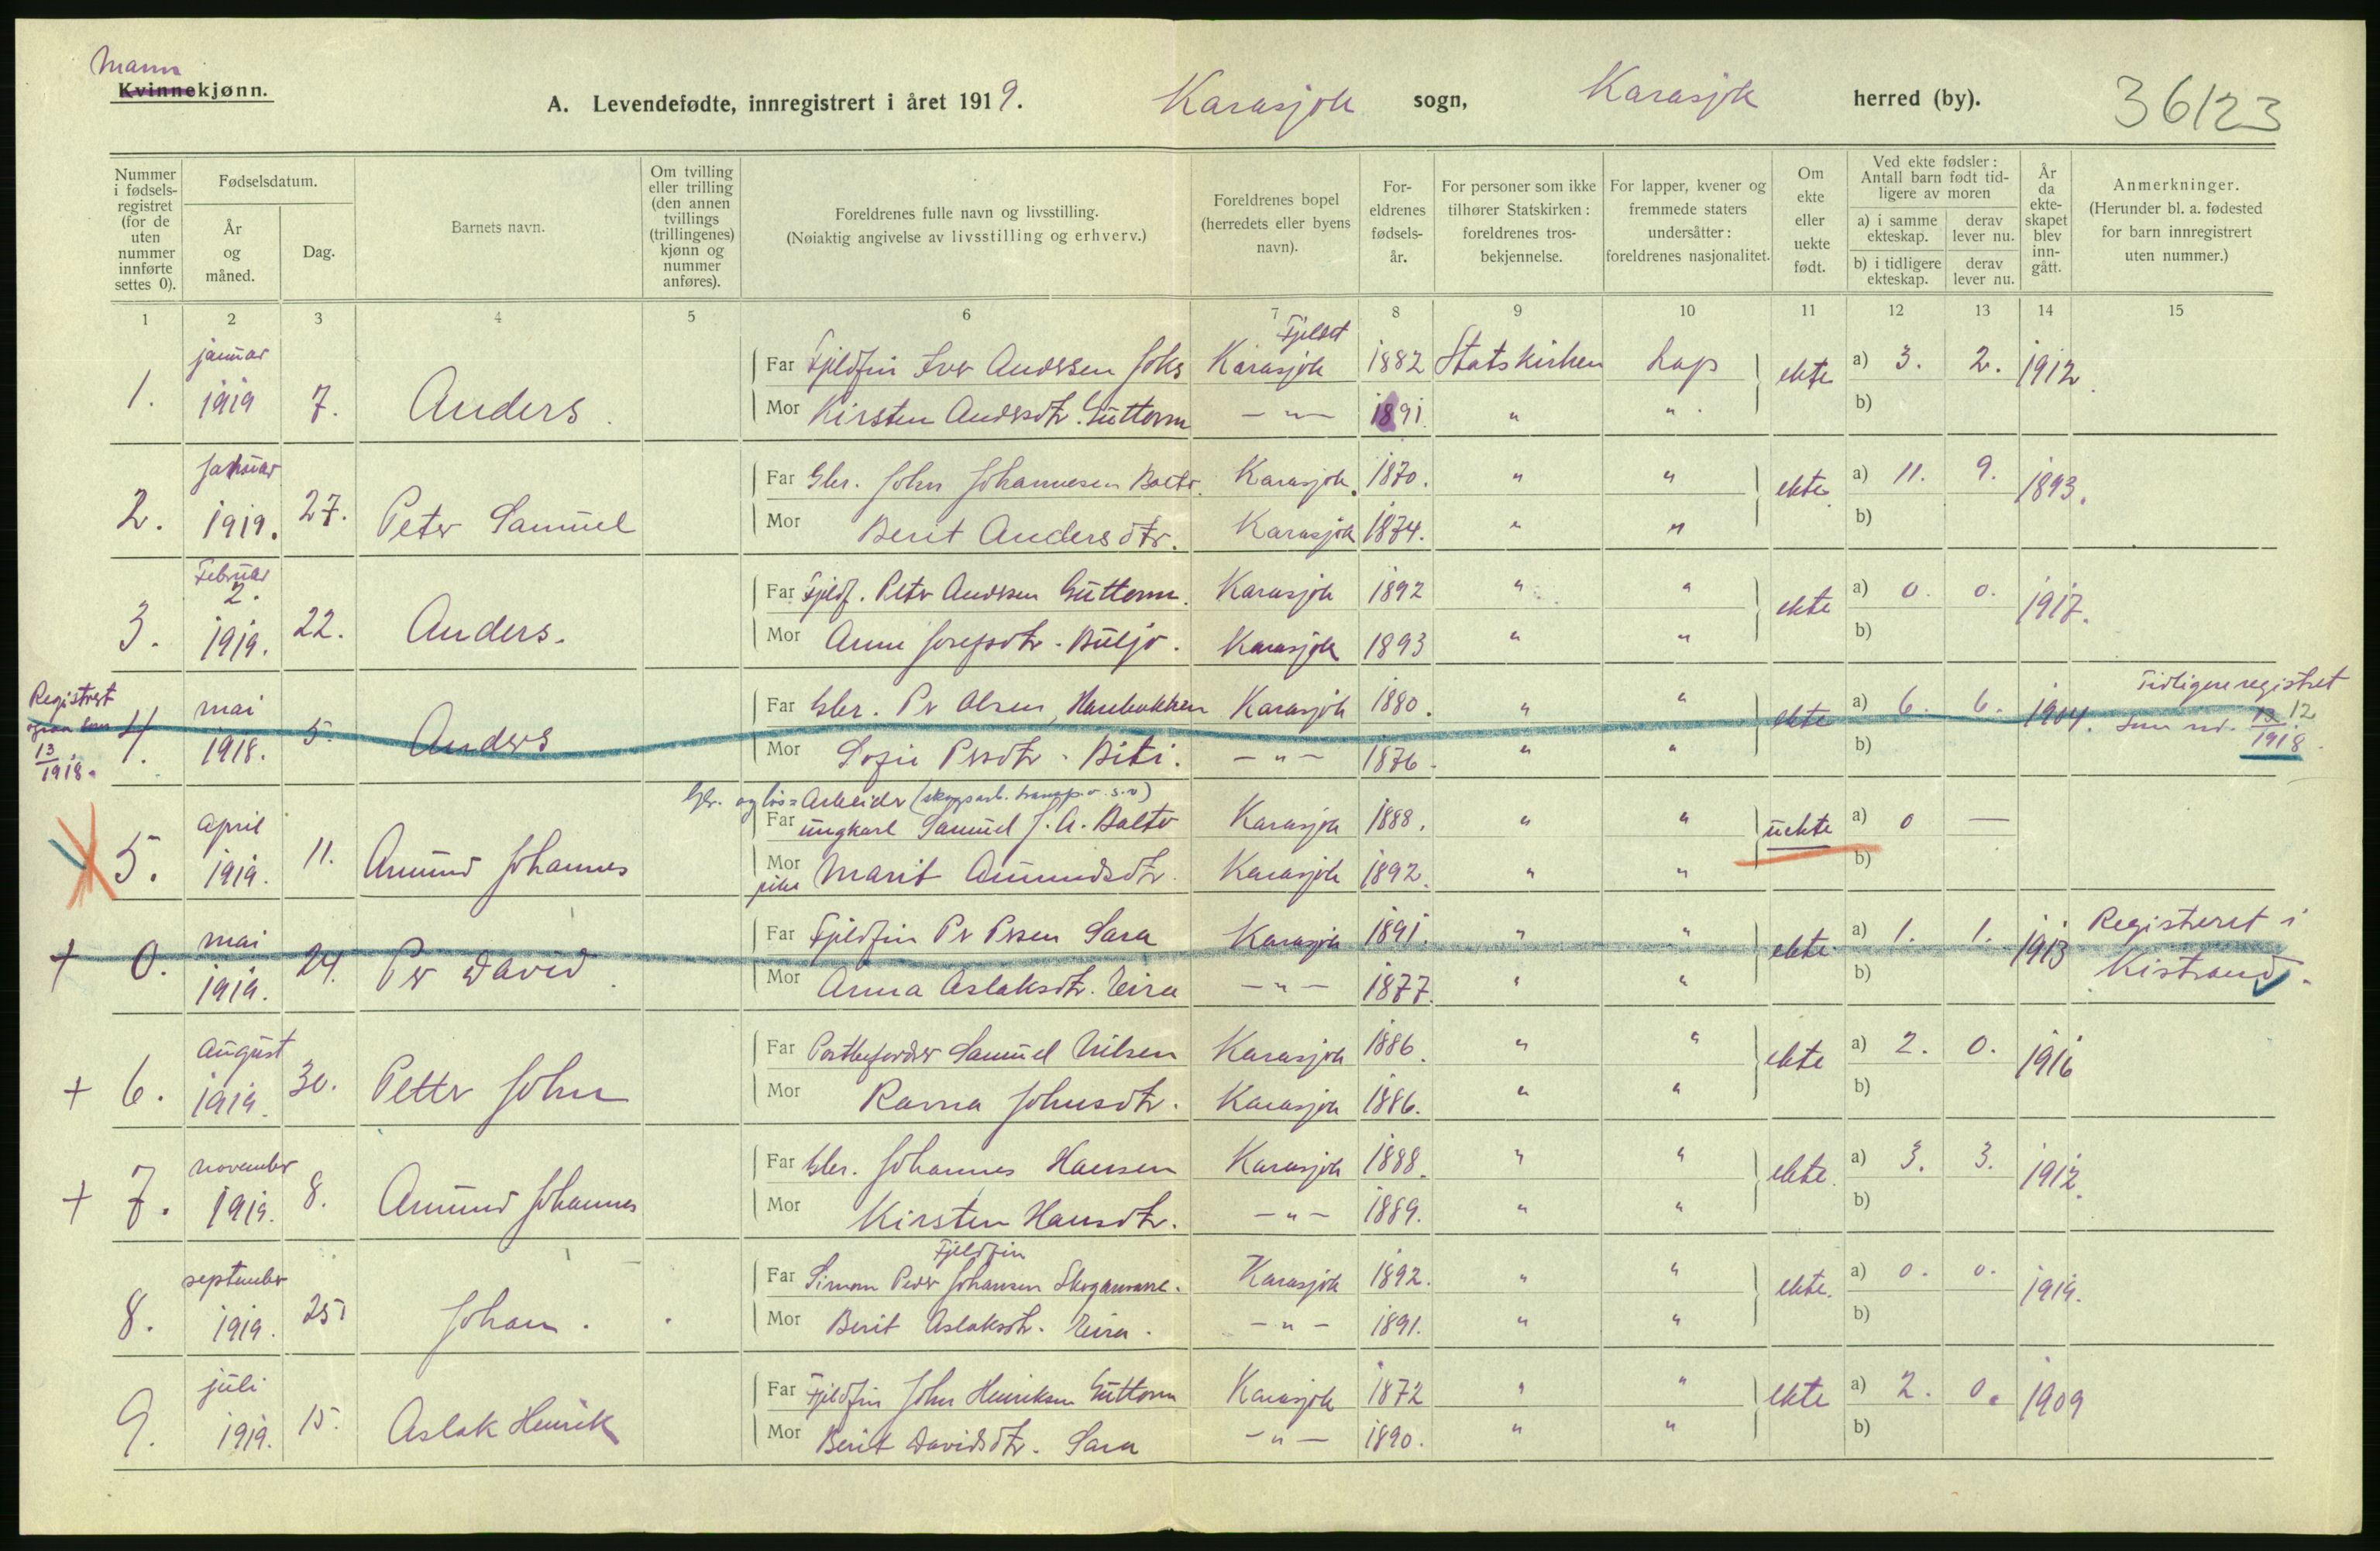 Mann
Kvinnekjønn.
A. Levendefødte, innregistrert i året 1919. Karasjok sogn, Karasjok herred (by). 36123
Nummer i fødsels-registret (for de uten nummer innførte settes 0).
Fødselsdatum.
År og måned.
Dag.
Barnets navn.
Om tvilling eller trilling (den annen tvillings (trillingenes) kjønn og nummer anføres).
Foreldrenes fulle navn og livsstilling.
(Nøiaktig angivelse av livsstilling og erhverv.)
Foreldrenes bopel (herredets eller byens navn).
For-eldrenes fødsels-år.
For personer som ikke tilhører Statskirken: foreldrenes tros-bekjennelse.
For lapper, kvener og fremmede staters undersåtter: foreldrenes nasjonalitet.
Om ekte eller uekte født.
Ved ekte fødsler: Antall barn født tid-ligere av moren
a) i samme ekteskap.
derav lever nu.
b) i tidligere ekteskap.
derav lever nu.
År da ekte-skapet blev inn-gått.
Anmerkninger.
(Herunder bl. a. fødested for barn innregistrert uten nummer.)
1 2 3 4 5 6 7 8 9 10 11 12 13 14 15
Fjeldet
1. januar 1919 7. Anders.
Far Fjeldfin Iver Andersen Joks Karasjok 1882 Statskirken Lap ekte a) 3. 2. 1912
Mor Kirsten Andersdtr. Guttorm — " — 1891. " " b)
2. Januar 1919. 27. Peter Samuel
Far Gbr. John Johannesen Balto. Karasjok. 1870. " " ekte a) 11. 9. 1893.
Mor Berit Andersdtr. Karasjok 1874. " " b)
3. Februar 2. 1919. 22. Anders.
Far Fjeldf. Peter Andersen Guttorm. Karasjok 1892 " " ekte a) 0. 0. 1917.
Mor Anne Josefsdtr. Buljo. Karasjok 1893 " " b)
Registrert ogsaa som 13/1918.
4. mai 1918. 5. Anders
Far Gbr. Per Olsen, Karasjok 1880. " " ekte a) 6. 6. 1904. Tidligere registret som nr. 13 12 1918
Mor Sofie Persdtr. Biti. — " — 1876. " " b)
Gbr. og løs=Arbeider (skogsarb. transp. o. s. v)
5. april 1919. 11. Amund Johannes
Far ungkarl Samuel J. A. Balto Karasjok 1888. " " uekte a) 0 —
Mor pike Marit Amundsdtr. Karasjok 1892. " " b)
+ 0. mai 1919. 24. Per David.
Far Fjeldfin Per Persen Sara Karasjok 1891. " " ekte a) 1. 1. 1913 Registreret i Kistrand.
Mor Anna Aslaksdtr. Eira — " — 1877. " " b)
+ 6. August 1919. 30. Petter John
Far Postbefordrer Samuel Nilsen Karasjok 1886. " " ekte a) 2. 0. 1916
Mor Ravna Johnsdtr. Karasjok 1886. " " b)
+ 7. november 1919. 8. Amund Johannes
Far Gbr. Johannes Hansen Karasjok 1888. " " ekte. a) 3. 3. 1912.
Mor Kirsten Hansdtr. — " — 1889. " " b)
Fjeldfin
8. september 1919. 25. Johan.
Far Simon Peder Johansen Skoganvarre. Karasjok 1892. " " ekte. a) 0. 0. 1919.
Mor Berit Aslaksdtr. Eira. — " — 1891. " " b)
9. juli 1919. 15. Aslak Henrik
Far Fjeldfin John Henriksen Guttorm Karasjok 1872 " " ekte a) 2. 0. 1909
Mor Berit Davidsdtr. Sara — " — 1890. " " b)